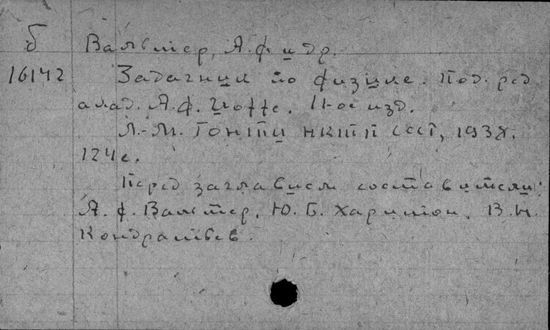 б Вальтер, А.Ф. и др.
16142 Задачник по физике. Под. ред.
акад. А.Ф. Иоффе. 11-ое изд.
Л.-М. ГОНТИ НКТП СССР, 1938.
124 с.
Перед заглавием составители:
А. Ф. Вальтер, Ю. Б. Харитон, В. Н.
Кондратьев.